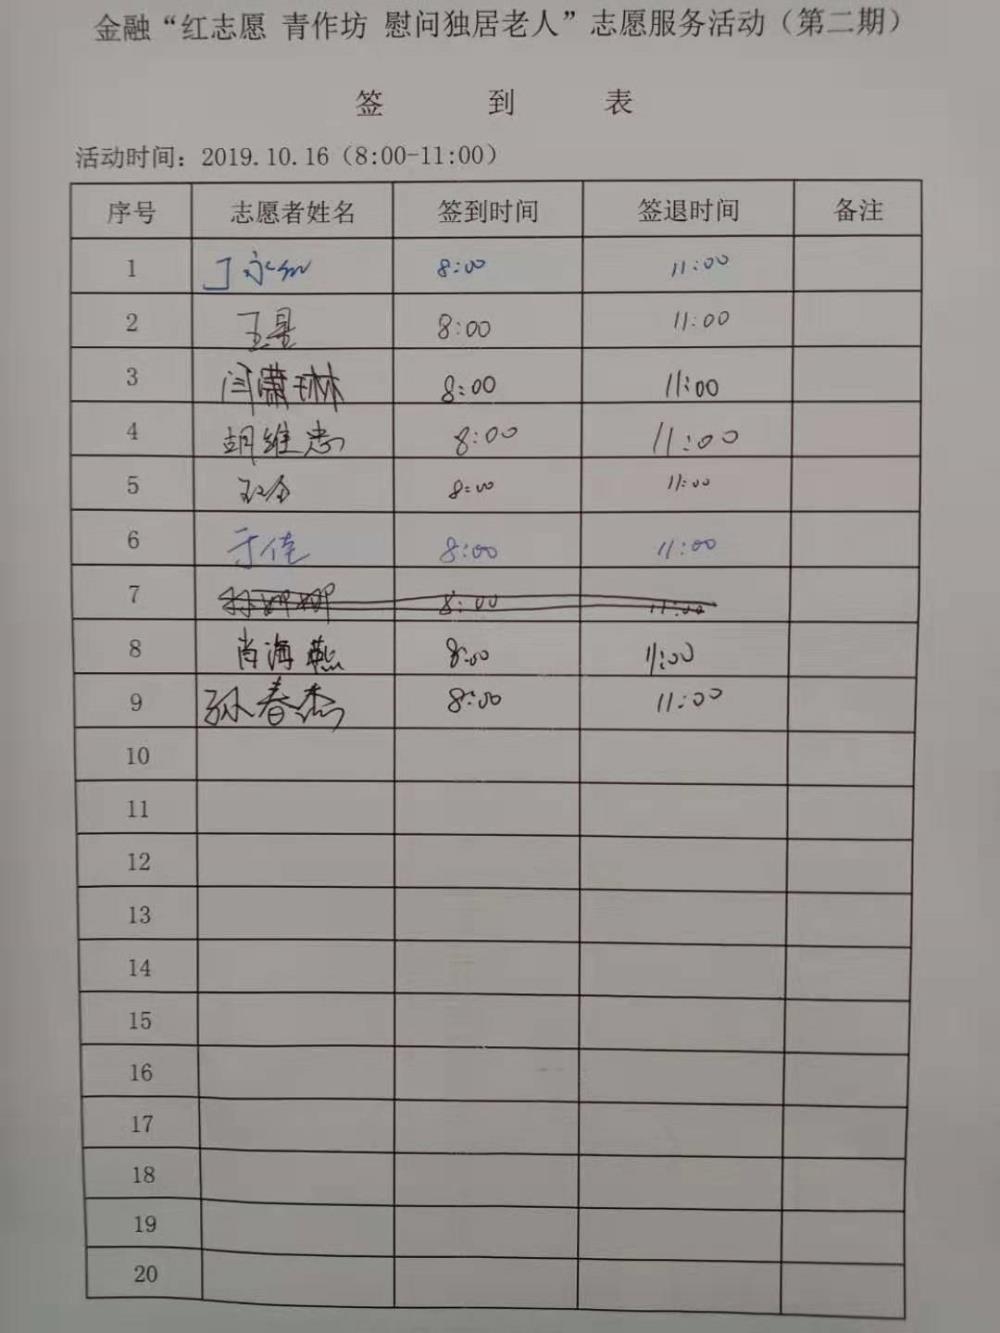 金融“红志愿 青作坊 慰问独居老人”志愿服务活动（第二期）
签 到 表
活动时间：2019.10.16（8:00-11:00）
序号 志愿者姓名 签到时间 签退时间 备注
1 丁永 8:00 11:00
2 王星 8:00 11:00
3 闫潇琳 8:00 11:00
4 胡维忠 8:00 11:00
5 8:00 11:00
6 于佳 8:00 11:00
7 孙娜娜 8:00 11:00
8 肖海燕 8:00 11:00
9 孙春杰 8:00 11:00
10
11
12
13
14
15
16
17
18
19
20